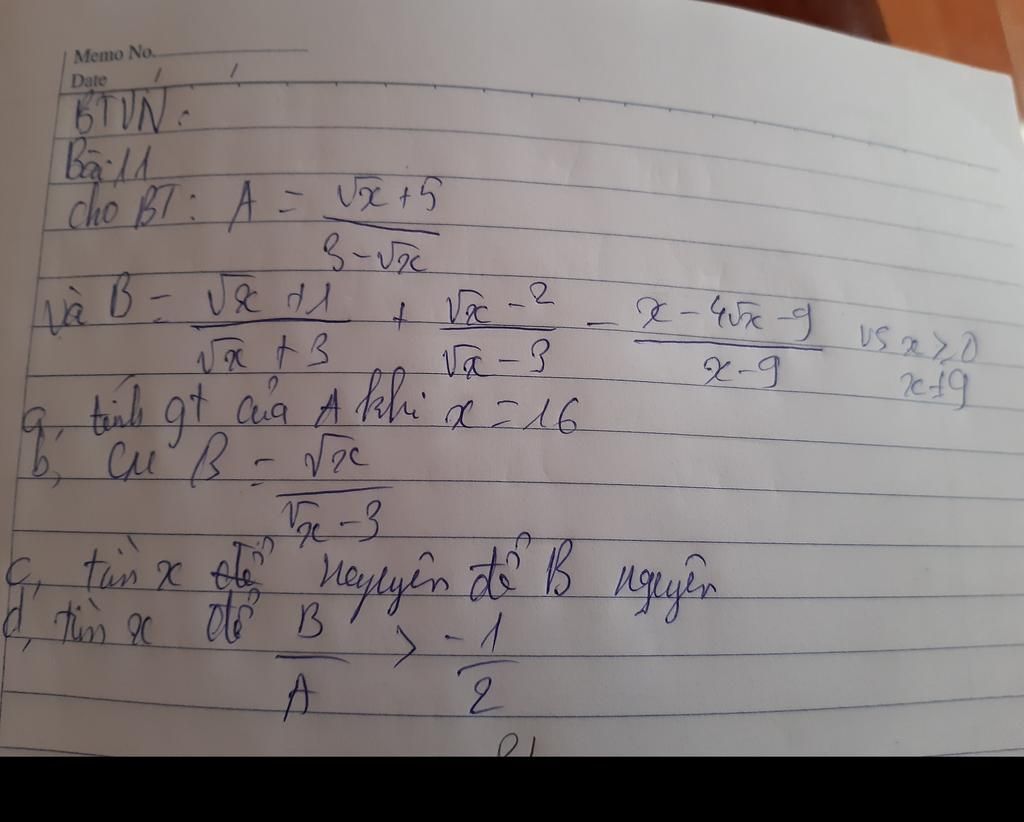 Memo No.
Date / /
BTVN:
Bài 11
cho BT: A = \frac{\sqrt{x}+5}{3-\sqrt{x}}
và B = \frac{\sqrt{x}+1}{\sqrt{x}+3} + \frac{\sqrt{x}-2}{\sqrt{x}-3} - \frac{x-4\sqrt{x}-9}{x-9} vs x ≥ 0
x ≠ 9
a, tính gt của A khi x = 16
b, CM B = \frac{\sqrt{x}}{\sqrt{x}-3}
c, tìm x nguyên để B nguyên
d, tìm x để \frac{B}{A} > \frac{-1}{2}